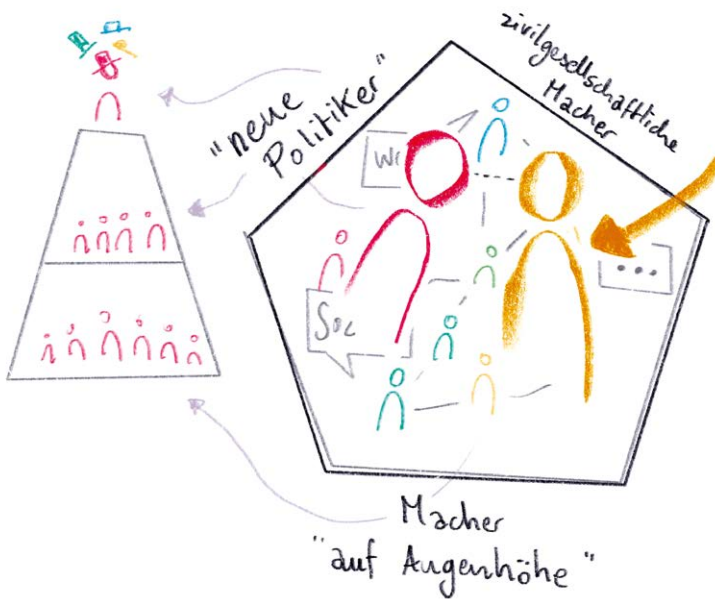 "neue
Politiker"
zivilgesellschaftliche
Macher
Soc
...
Macher
"auf Augenhöhe"